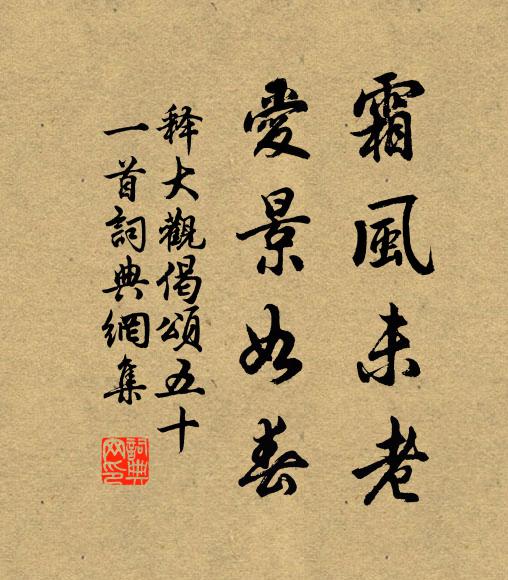 霜風未老
愛景如春
釋大觀偈頌五十
一首詞典網集
詞典
网印